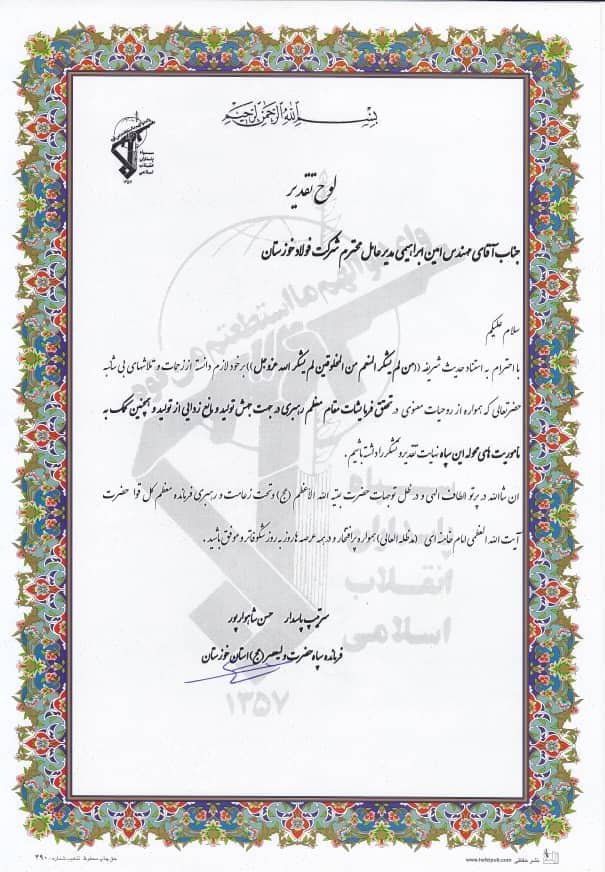 بسم الله الرحمن الرحیم
سپاه
پاسداران
انقلاب
اسلامی
۱۳۵۷
لوح تقدیر
جناب آقای مهندس امین ابراهیمی مدیرعامل محترم شرکت فولاد خوزستان
سلام علیکم
با احترام به استناد حدیث شریفه ((من لم یشکر المنعم من المخلوقین لم یشکر الله عزوجل)) بر خود لازم دانسته از زحمات و تلاشهای بی شائبه
حضرتعالی که همواره از روحیات معنوی در تحقق فرمایشات مقام معظم رهبری در جهت جهش تولید و مانع زدایی از تولید و همچنین کمک به
ماموریت های محوله این سپاه نهایت تقدیر و تشکر را داشته باشیم .
ان شاالله در پرتو الطاف الهی و در ظل توجهات حضرت بقیة الله الاعظم (عج) و تحت زعامت و رهبری فرمانده معظم کل قوا حضرت
آیت الله العظمی امام خامنه ای (مدظله العالی) همواره پرافتخار و در همه عرصه ها روز به روز شکوفاتر و موفق باشید .
سرتیپ پاسدار حسن شاهوارپور
فرمانده سپاه حضرت ولیعصر (عج) استان خوزستان
واعدوا لهم ما استطعتم من قوه
سپاه
پاسداران
انقلاب
اسلامی
۱۳۵۷
حق چاپ محفوظ تذهیب شماره: ۲۹۰
www.hafezpub.com نشر حافظی